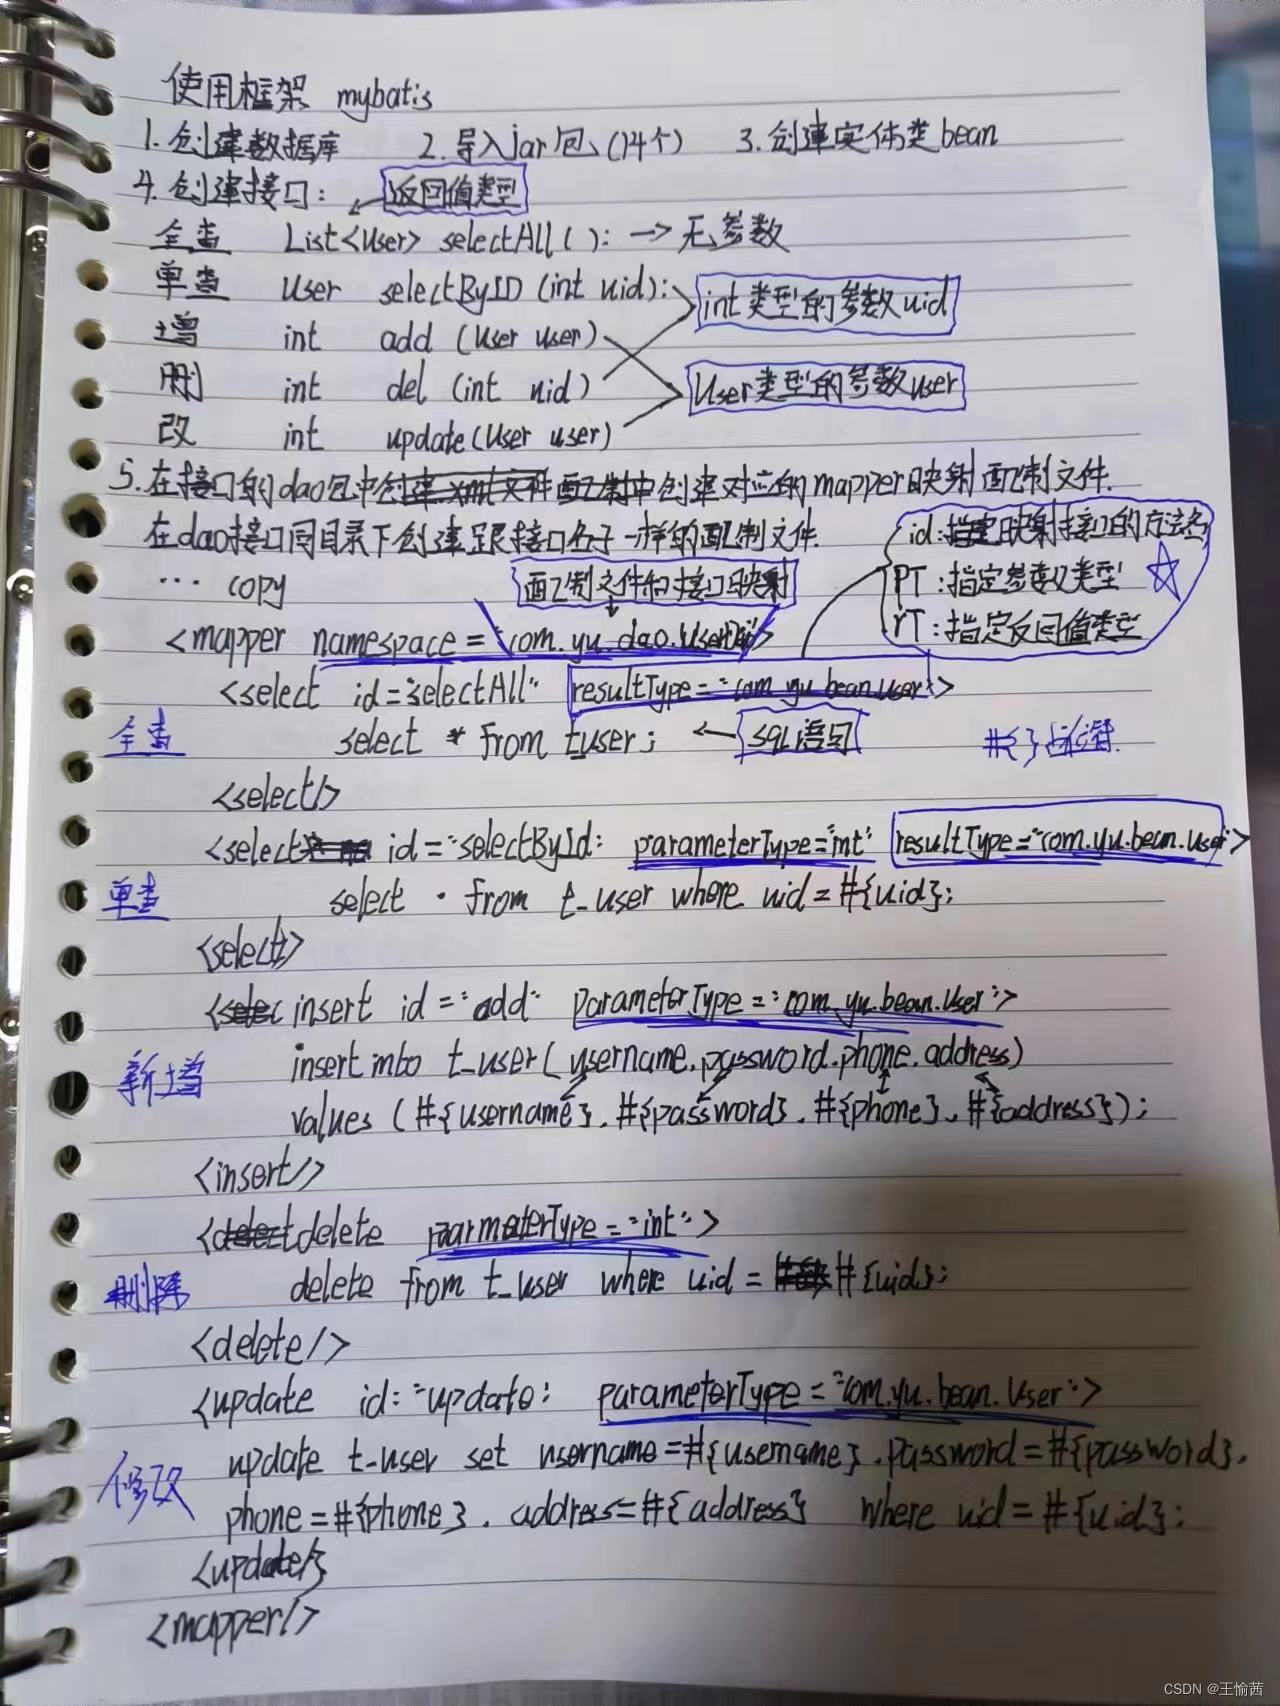 使用框架 mybatis
1.创建数据库 2.导入jar包(14个) 3.创建实体类bean
4.创建接口: 返回值类型
全查 List<User> selectAll(): → 无参数
单查 User selectByID (int uid): int类型的参数uid
增 int add (User user)
删 int del (int uid) User类型的参数user
改 int update(User user)
5.在接口的dao包中创建对应的mapper映射配制文件.
在dao接口同目录下创建跟接口名字一样的配制文件.
id:指定映射接口的方法名
··· copy 配制文件和接口映射 PT:指定参数类型
rT:指定反回值类型
<mapper namespace="com.yu.dao.UserDao">
<select id="selectAll" resultType="com.yu.bean.User">
全查 select * from tuser; ← SQL语句 #{}占位符.
<select/>
<select id="selectById: parameterType="int" resultType="com.yu.bean.User">
单查 select · from t_user where uid=#{uid};
<select>
<insert id="add" parameterType="com.yu.bean.User">
新增 insert into t_user(username.password.phone.address)
values (#{username}.#{password}.#{phone}.#{address});
<insert/>
<delete parmaterType="int">
删除 delete from t_user where uid=#{uid};
<delete/>
<update id:"update: parameterType="com.yu.bean.User">
修改 update t_user set username=#{username}.password=#{password}.
phone=#{phone}. address=#{address} where uid=#{uid};
<update/>
<mapper/>
CSDN @王愉茜